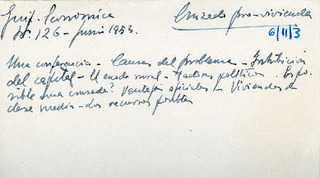 Inf. Económica
No. 126 - junio 1953.
Cruzada pro-vivienda
6/11/3
Una conferencia - Causas del problema - Institución
del capital - Éxodo rural - Factores políticos - Es po-
sible una cruzada? Ventajas sociales - Viviendas de
clase media - Los recursos posibles